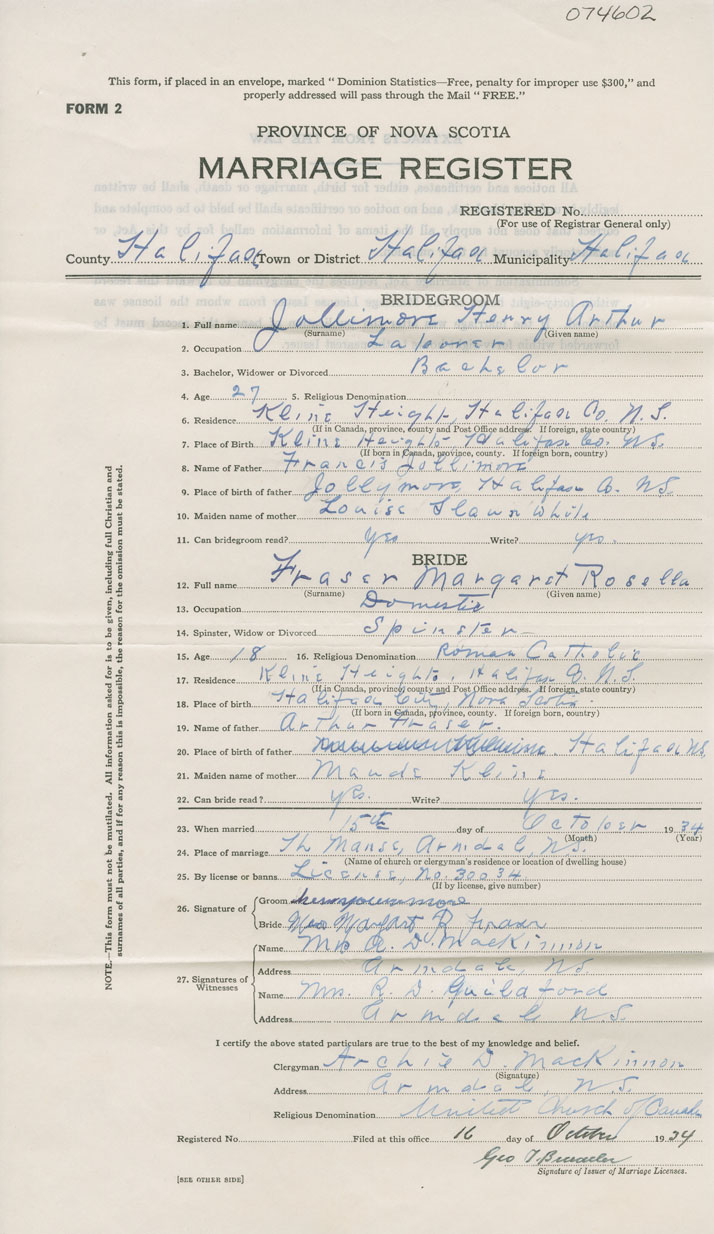 074602
This form, if placed in an envelope, marked " Dominion Statistics—Free, penalty for improper use $300," and
properly addressed will pass through the Mail " FREE."
FORM 2
PROVINCE OF NOVA SCOTIA
MARRIAGE REGISTER
REGISTERED No.
(For use of Registrar General only)
County Halifax Town or District Halifax Municipality Halifax
BRIDEGROOM
1. Full name Jollimore Henry Arthur
(Surname) (Given name)
2. Occupation Laborer
3. Bachelor, Widower or Divorced Bachelor
4. Age 27 5. Religious Denomination
6. Residence Kline Height, Halifax Co. N.S.
(If in Canada, province, county and Post Office address. If foreign, state country)
7. Place of Birth Kline Heights Halifax Co. NS.
(If born in Canada, province, county. If foreign born, country)
8. Name of Father Francis Jollimore
9. Place of birth of father Jollymore, Halifax Co. NS.
10. Maiden name of mother Louise Slaunwhite
11. Can bridegroom read? Yes Write? yes.
BRIDE
12. Full name Fraser Margaret Rosella
(Surname) (Given name)
13. Occupation Domestic
14. Spinster, Widow or Divorced Spinster
15. Age 18 16. Religious Denomination Roman Catholic
17. Residence Kline Heights, Halifax Co. N.S.
(If in Canada, province, county and Post Office address. If foreign, state country)
18. Place of birth Halifax City, Nova Scotia.
(If born in Canada, province, county. If foreign born, country)
19. Name of father Arthur Fraser.
20. Place of birth of father Halifax NS
21. Maiden name of mother Maude Kline
22. Can bride read? yes. Write? yes.
23. When married 15th day of October 1934
(Month) (Year)
24. Place of marriage Th Manse, Armdale, N.S.
(Name of church or clergyman's residence or location of dwelling house)
25. By license or banns License, No. 30034
(If by license, give number)
26. Signature of
Groom
Bride Margart R Fraser
27. Signatures of Witnesses
Name Mrs A. D. MacKinnon
Address Armdale, NS.
Name Mrs. R. D. Guildford
Address Armdale N.S.
I certify the above stated particulars are true to the best of my knowledge and belief.
Clergyman Archie D. MacKinnon
(Signature)
Address Armdale, N.S.
Religious Denomination United Church of Canada
Registered No. Filed at this office 16 day of October 1934
Geo T
Signature of Issuer of Marriage Licenses.
[SEE OTHER SIDE]
NOTE.—This form must not be mutilated. All information asked for is to be given, including full Christian and
surnames of all parties, and if for any reason this is impossible, the reason for the omission must be stated.